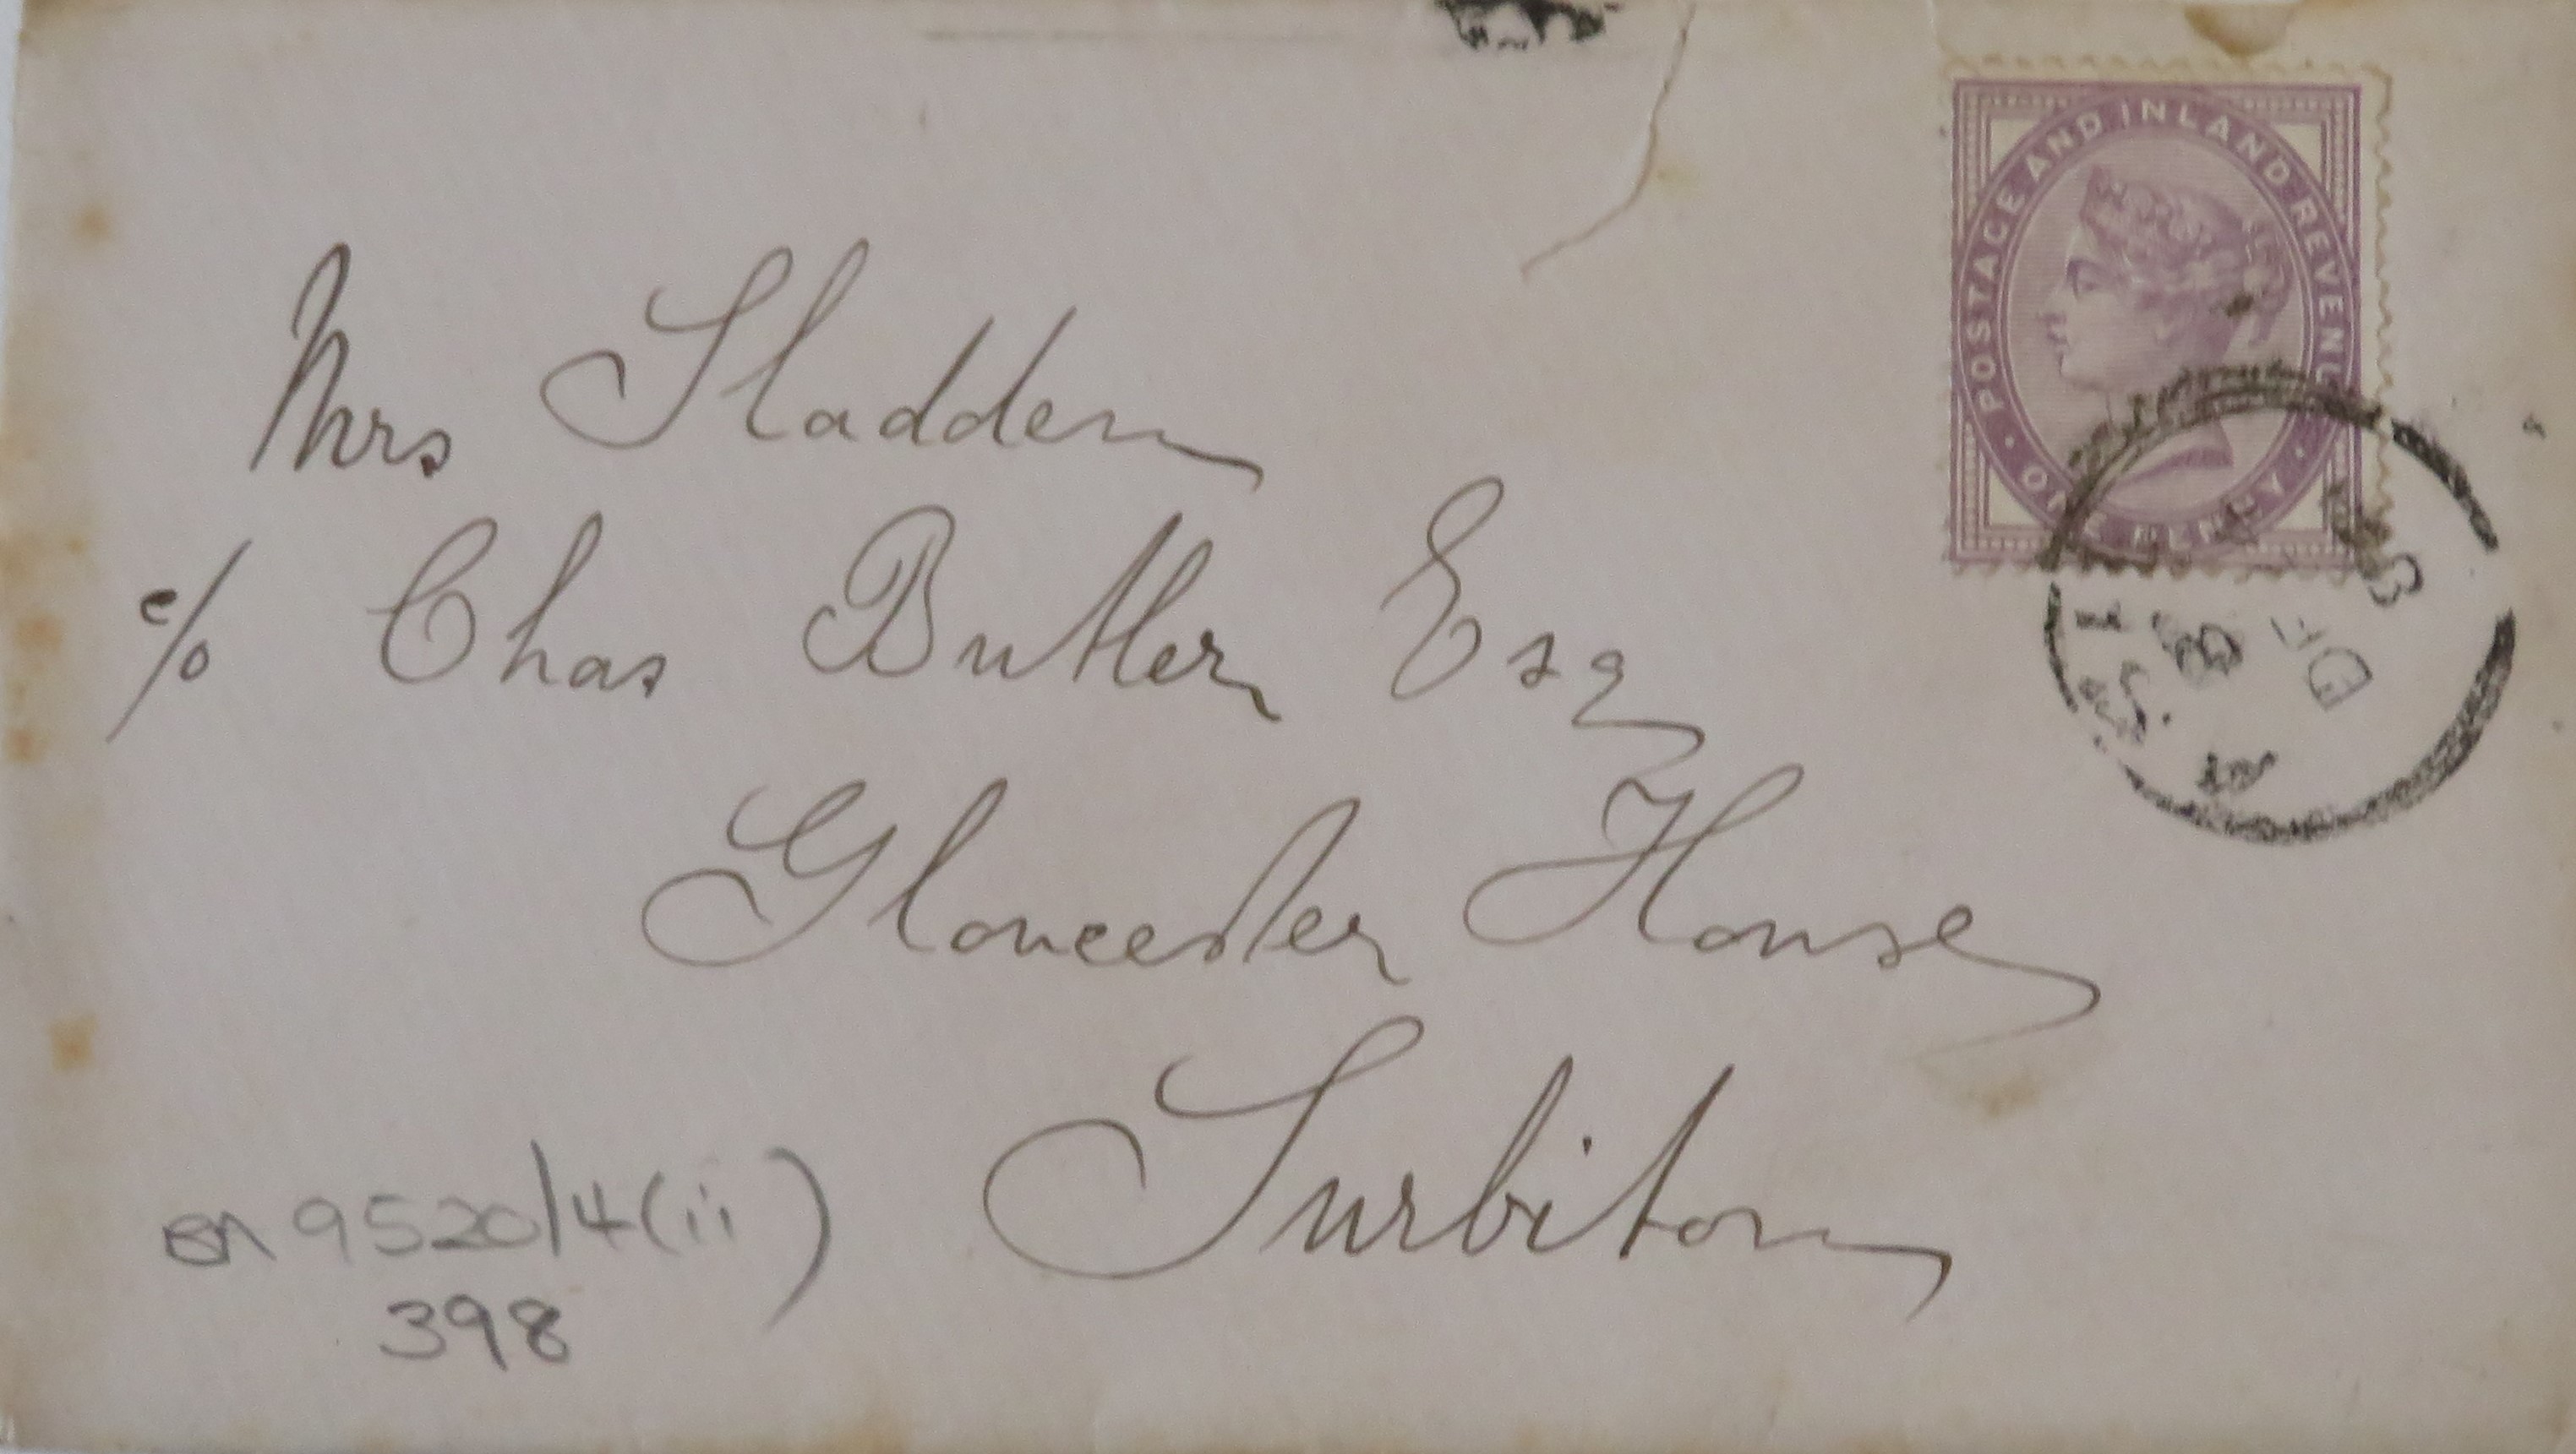 POSTAGE AND INLAND REVENUE
ONE PENNY
Mrs Sladden
c/o Chas Butler Esq
Gloucester House
Surbiton
9520/4(ii)
398